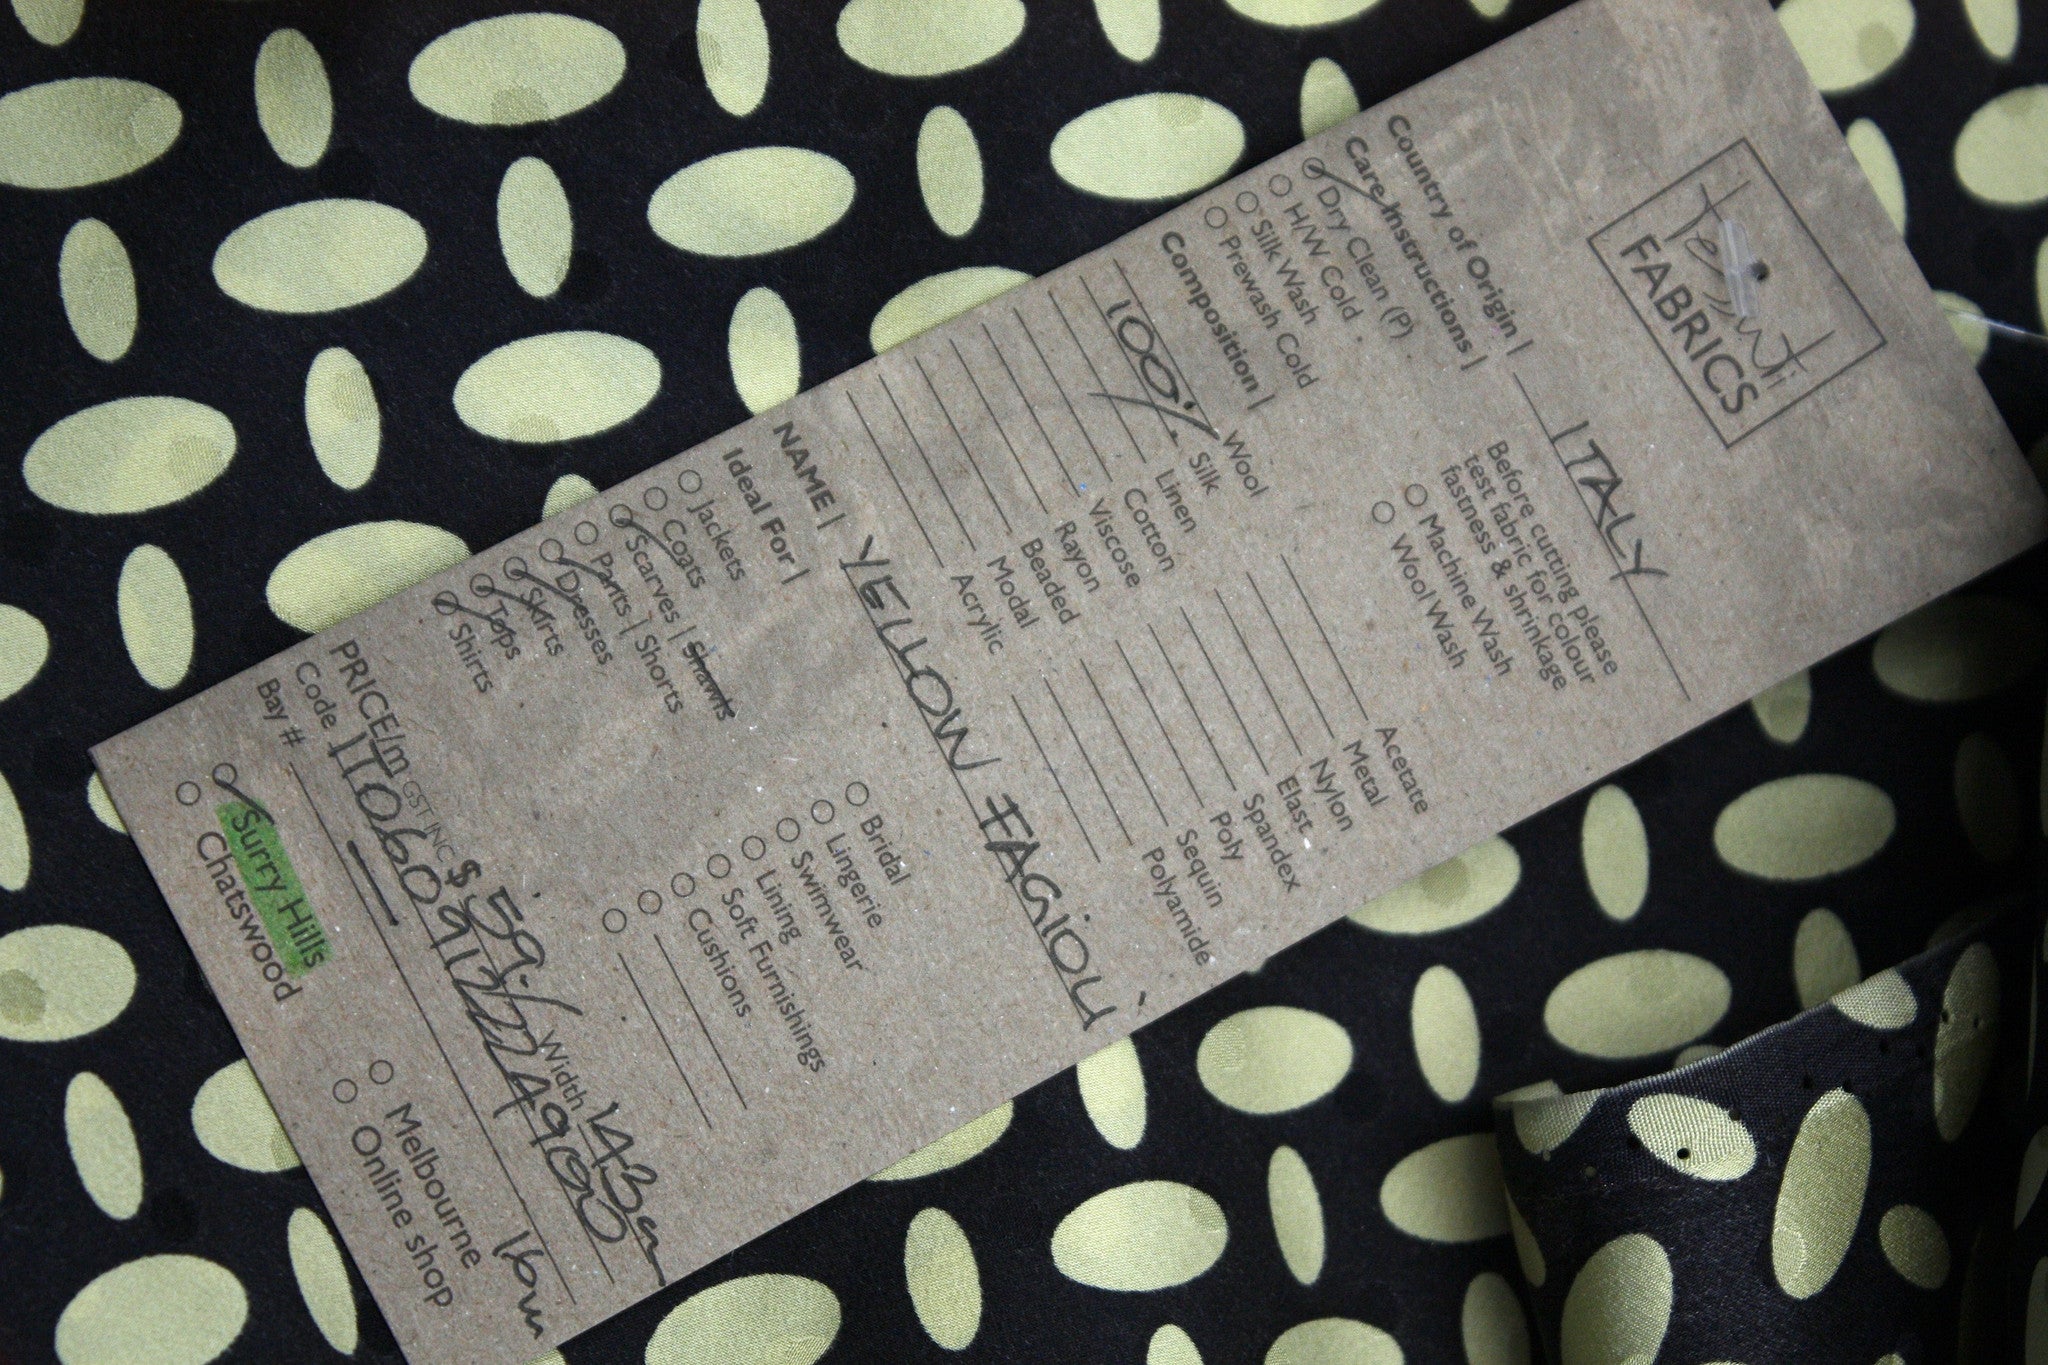 Tessuti
FABRICS
Country of Origin | ITALY
Care Instructions |
Dry Clean (P)
H/W Cold
Silk Wash
Prewash Cold
Before cutting please
test fabric for colour
fastness & shrinkage
Machine Wash
Wool Wash
Composition |
Wool
100% Silk
Linen
Cotton
Viscose
Rayon
Beaded
Modal
Acrylic
Acetate
Metal
Nylon
Elast
Spandex
Poly
Sequin
Polyamide
NAME | YELLOW FAGIOLI
Ideal For |
Jackets
Coats
Scarves | Shawls
Pants | Shorts
Dresses
Skirts
Tops
Shirts
Bridal
Lingerie
Swimwear
Lining
Soft Furnishings
Cushions
PRICE/m GST INC $ 59./ Width 143cm
Code ITO6091224900
Bay # 16m
Surry Hills
Chatswood
Melbourne
Online shop